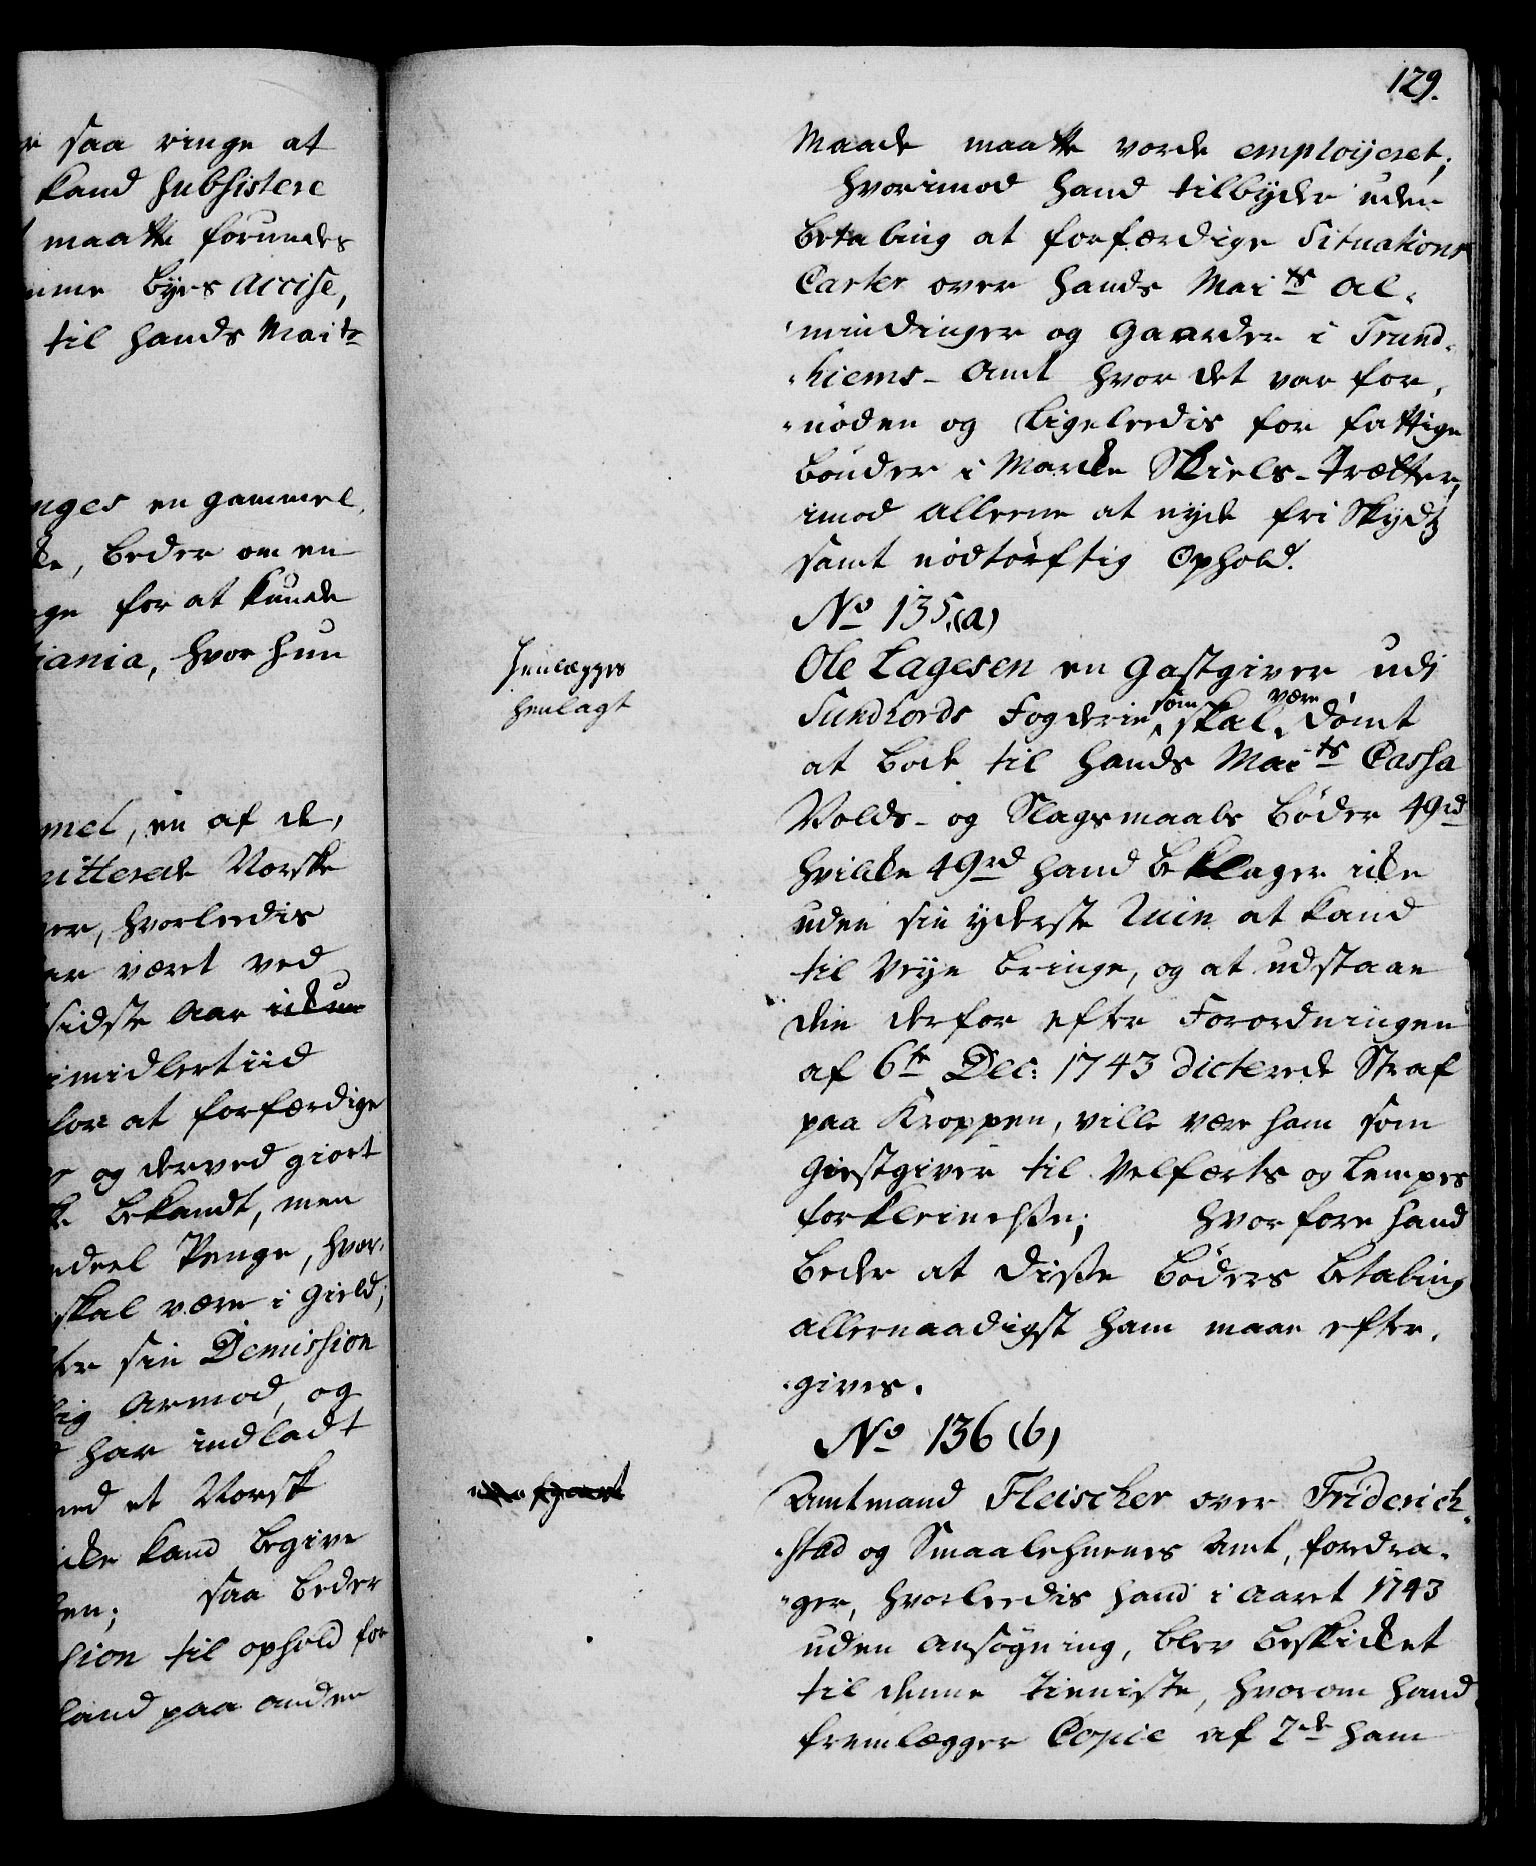 saa ringe at
kand Subsistere
maatte forundes
byes Accise,
til hands Maits
en gammel
beder om en
for at kunde
hvor hun
en af de
Norske
hvorledis
været ved
sidste Aar
imidlertiid
for at forfærdige
og derved giort
bekandt, men
Penge, hvor-
skal være i Gield;
sin Demission
Armod, og
har indladt
et Norsk
kand begive
saa beder
til ophold for
paa anden
129.
Maade maatte vorde employeret;
hvorimod hand tilbyder uden
betaling at forfærdige Situations
Carter over hands Maits Al-
-mindinger og Gaarder i Trund-
-hiems- Amt hvor det var for-
-nöden og ligeleedis for fattige
bönder i Marke Skiels-Trætter,
imod alleene at nyde fri Skydtz
samt nödtörftig Ophold.
No 135.(a)
Henlægges
henlagt
Ole Lagesen en Gastgiver udi
Sundhords Fogderie, som skal være dömt
at bøde til hands Maits Cassa
Volds- og Slagsmaals Böder 49rd
hvilke 49rd hand beklager icke
uden sin yderste Ruin at kand
til Veye bringe, og at udstaae
den derfor efter Forordningen
af 6te Dec: 1743 dicterede Straf
paa Kroppen, ville være ham som
Giestgiver til Velfærts og Lempes
forkleinelse; hvorfore hand
beder at disse Böders betaling
allernaadigst ham maae efter-
-gives.
No 136 (b)
Amtmand Fleischer over Friderich-
-stad og Smaalehnenes Amt, fordra-
-ger, hvorledis hand i Aaret 1743
uden Ansögning, blev beskicket
til denne tieniste, hvorom hand
fremlægger Copie af 2de ham